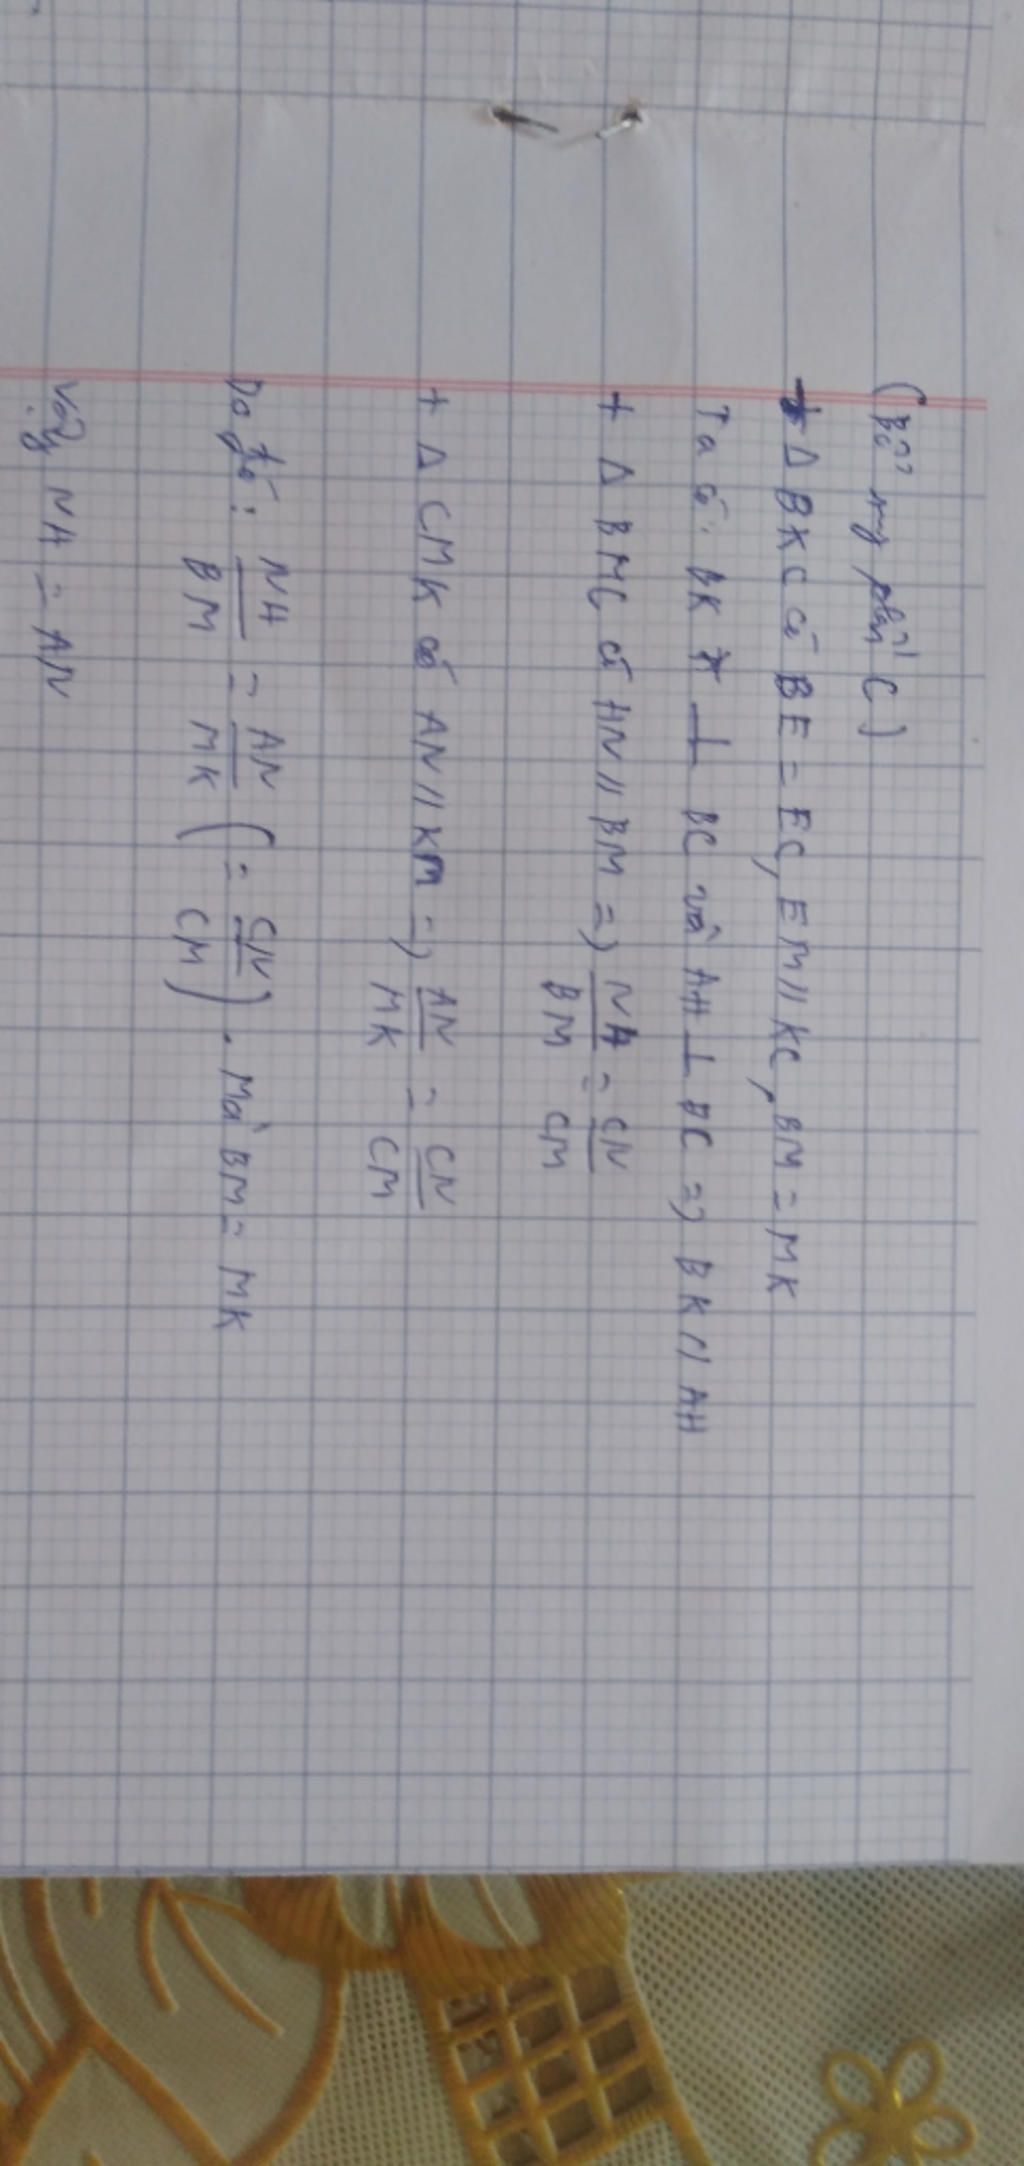 (Bổ sung phần C)
+ Δ BKC có BE = EC, EM // KC, BM = MK
Ta có: BK ⊥ BC và AH ⊥ BC => BK // AH
+ Δ BMC có HN // BM => NH/BM = CN/CM
+ Δ CMK có AN // KM => AN/MK = CN/CM
Do đó: NH/BM = AN/MK (= CN/CM). Mà BM = MK
Vậy NH = AN